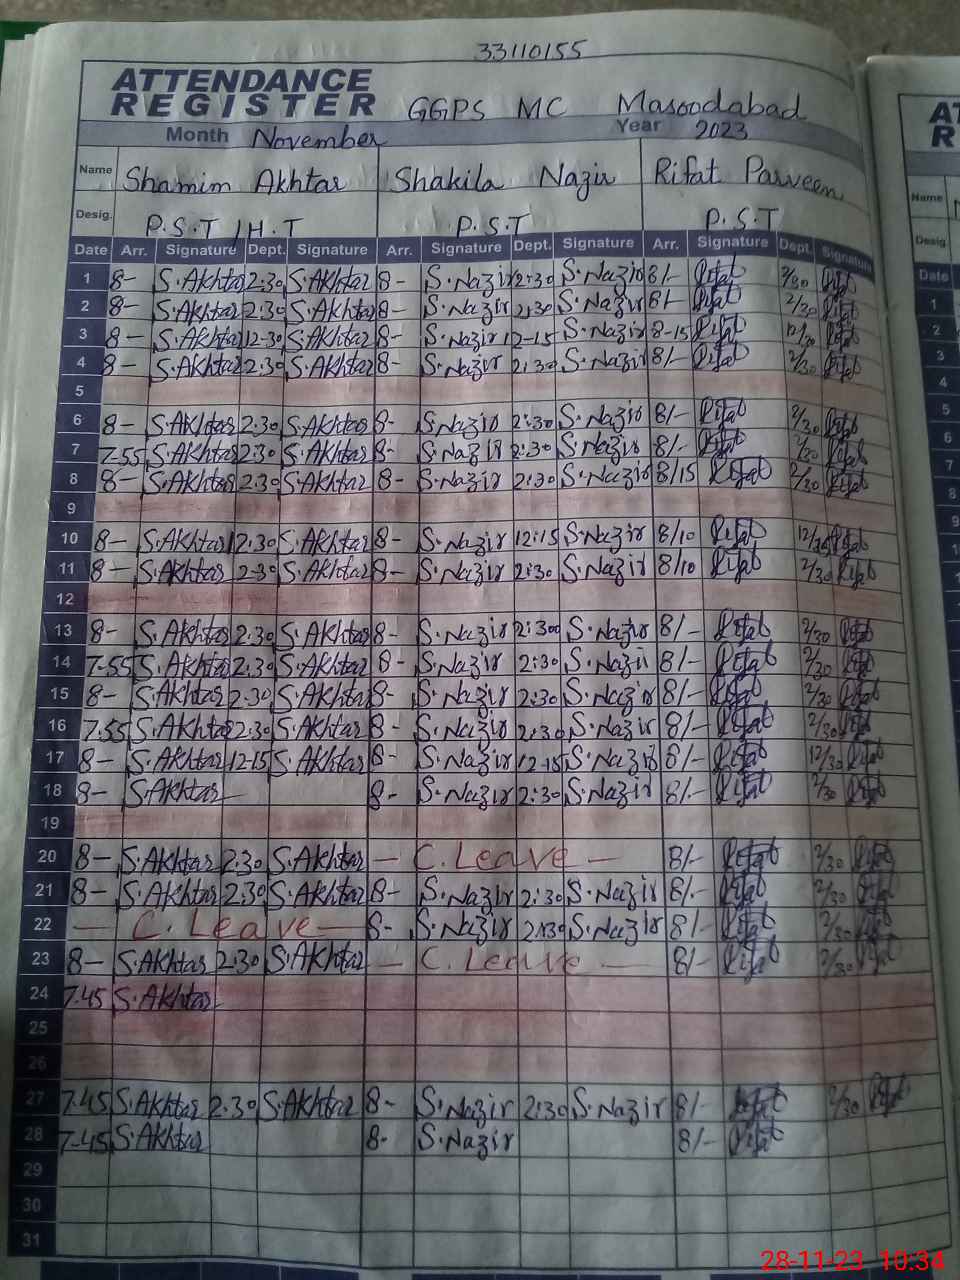 33110155
ATTENDANCE
REGISTER GGPS MC Masoodabad
Month November Year 2023
Name Shamim Akhtar Shakila Nazir Rifat Parveen
Desig. P.S.T / H.T P.S.T P.S.T
Date Arr. Signature Dept. Signature Arr. Signature Dept. Signature Arr. Signature Dept. Signature
1 8- S.Akhtar 2:30 S.Akhtar 8- S.Nazir 2:30 S.Nazir 8/- Rifat 2/30 Rifat
2 8- S.Akhtar 2:30 S.Akhtar 8- S.Nazir 2:30 S.Nazir 8/- Rifat 2/30 Rifat
3 8- S.Akhtar 12-30 S.Akhtar 8- S.Nazir 12-15 S.Nazir 8-15 Rifat Rifat
4 8- S.Akhtar 2:30 S.Akhtar 8- S.Nazir 2:30 S.Nazir 8/- Rifat 2/30 Rifat
5
6 8- S.Akhtar 2:30 S.Akhtar 8- S.Nazir 2:30 S.Nazir 8/- Rifat 2/30 Rifat
7 7.55 S.Akhtar 2:30 S.Akhtar 8- S.Nazir 2:30 S.Nazir 8/- Rifat 2/30 Rifat
8 8- S.Akhtar 2:30 S.Akhtar 8- S.Nazir 2:30 S.Nazir 8/15 Rifat 2/30 Rifat
9
10 8- S.Akhtar 12.30 S.Akhtar 8- S.Nazir 12:15 S.Nazir 8/10 Rifat Rifat
11 8- S.Akhtar 2-30 S.Akhtar 8- S.Nazir 2:30 S.Nazir 8/10 Rifat 2/30 Rifat
12
13 8- S.Akhtar 2.30 S.Akhtar 8- S.Nazir 2:30 S.Nazir 8/- Rifat 2/30 Rifat
14 7.55 S.Akhtar 2.30 S.Akhtar 8- S.Nazir 2:30 S.Nazir 8/- Rifat 2/30 Rifat
15 8- S.Akhtar 2.30 S.Akhtar 8- S.Nazir 2:30 S.Nazir 8/- Rifat 2/30 Rifat
16 7.55 S.Akhtar 2.30 S.Akhtar 8- S.Nazir 2:30 S.Nazir 8/- Rifat 2/30 Rifat
17 8- S.Akhtar 12-15 S.Akhtar 8- S.Nazir 12-15 S.Nazir 8/- Rifat 12/30 Rifat
18 8- S.Akhtar 8- S.Nazir 2:30 S.Nazir 8/- Rifat 2/30 Rifat
19
20 8- S.Akhtar 2.30 S.Akhtar - C.Leave - 8/- Rifat 2/30 Rifat
21 8- S.Akhtar 2.30 S.Akhtar 8- S.Nazir 2:30 S.Nazir 8/- Rifat 2/30 Rifat
22 - C.Leave - 8- S.Nazir 2:30 S.Nazir 8/- Rifat 2/30 Rifat
23 8- S.Akhtar 2.30 S.Akhtar - C.Leave - 8/- Rifat 2/30 Rifat
24 7.45 S.Akhtar
25
26
27 7.45 S.Akhtar 2.30 S.Akhtar 8- S.Nazir 2:30 S.Nazir 8/- Rifat 2/30 Rifat
28 7-45 S.Akhtar 8- S.Nazir 8/- Rifat
29
30
31
AT
R
Name
Desig
Date
1
2
3
4
5
6
7
8
9
28-11-23 10:34